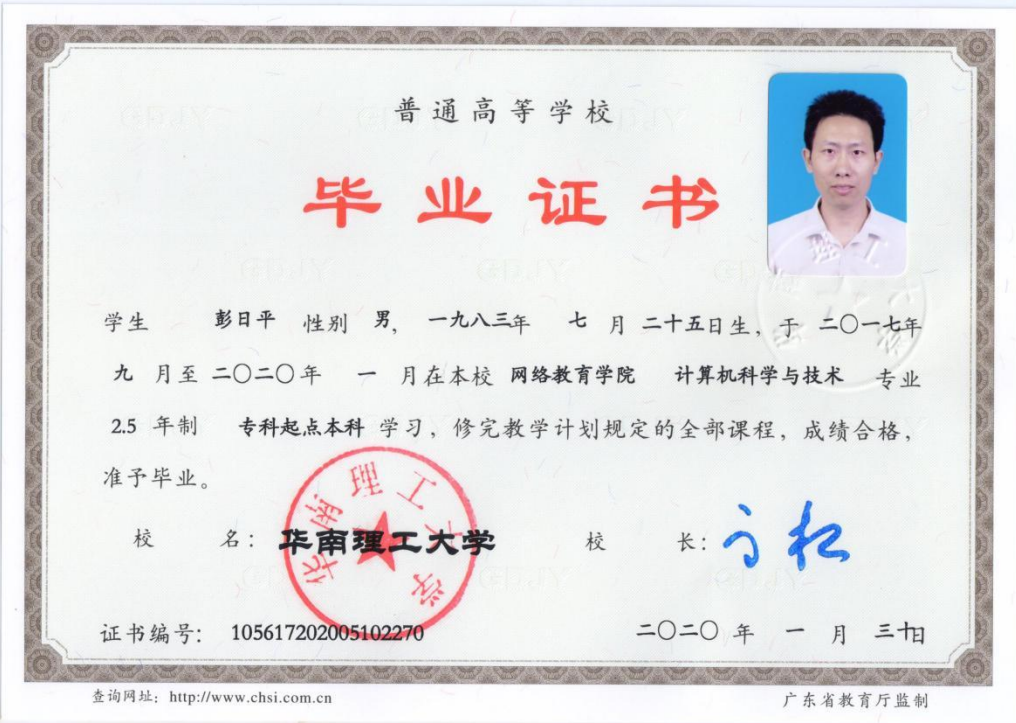 普通高等学校
毕业证书
学生 彭日平 性别 男，一九八三年 七 月 二十五日生，于 二〇一七年
九 月至 二〇二〇年 一 月在本校 网络教育学院 计算机科学与技术 专业
2.5 年制 专科起点本科 学习，修完教学计划规定的全部课程，成绩合格，
准予毕业。
华南理工大学
校 名：华南理工大学 校 长：
证书编号：105617202005102270 二〇二〇 年 一 月 三十日
查询网址：http://www.chsi.com.cn 广东省教育厅监制